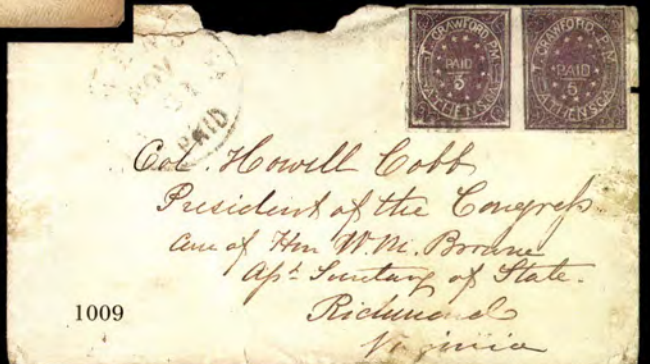 NOV
PAID
T. CRAWFORD, P.M.
PAID
5
ATHENS, GA.
T. CRAWFORD, P.M.
PAID
5
ATHENS, GA.
Col. Howell Cobb
President of the Congress
Care of Hon W. M. Browne
Asst Secretary of State.
Richmond
Virginia
1009